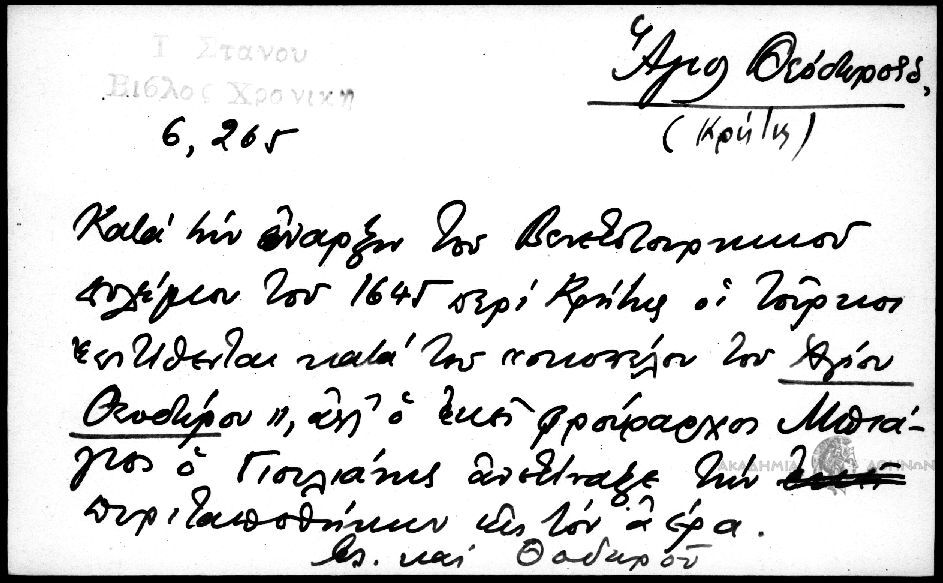 Ι Στανου
Βιβλος Χρονικη
6, 265
Ἅγιος Θεόδωρος,
(Κρήτης)
Κατά τήν ἔναρξιν του Βενετοτουρκικού
πολέμου του 1645 περί Κρήτης οἱ Τοῦρκοι
ἐπιτίθενται κατά του "σκοπέλου του Ἁγίου
Θεοδώρου", ἀλλ' ὁ ἐκεῖ φρούραρχος Μπιά-
γιος ὁ Γιουλιάνης ἀνετίναξε τήν ἐκεῖ
πυριταποθήκην εἰς τόν ἀέρα.
Βλ. καί Θοδωροῦ
ΑΚΑΔΗΜΙΑ ΑΘΗΝΩΝ